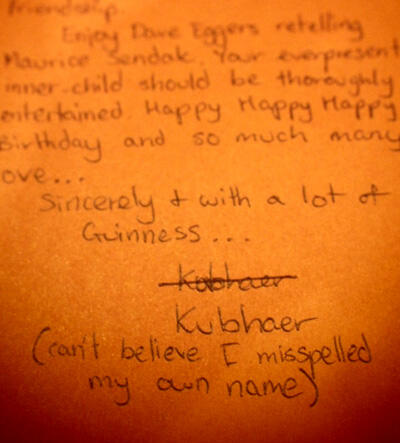 friendship.
Enjoy Dave Eggers retelling
Maurice Sendak. Your everpresent
inner-child should be thoroughly
entertained. Happy Happy Happy
Birthday and so much many
ove...
Sincerely & with a lot of
Guinness...
Kabhaer
Kubhaer
(can't believe I misspelled
my own name)